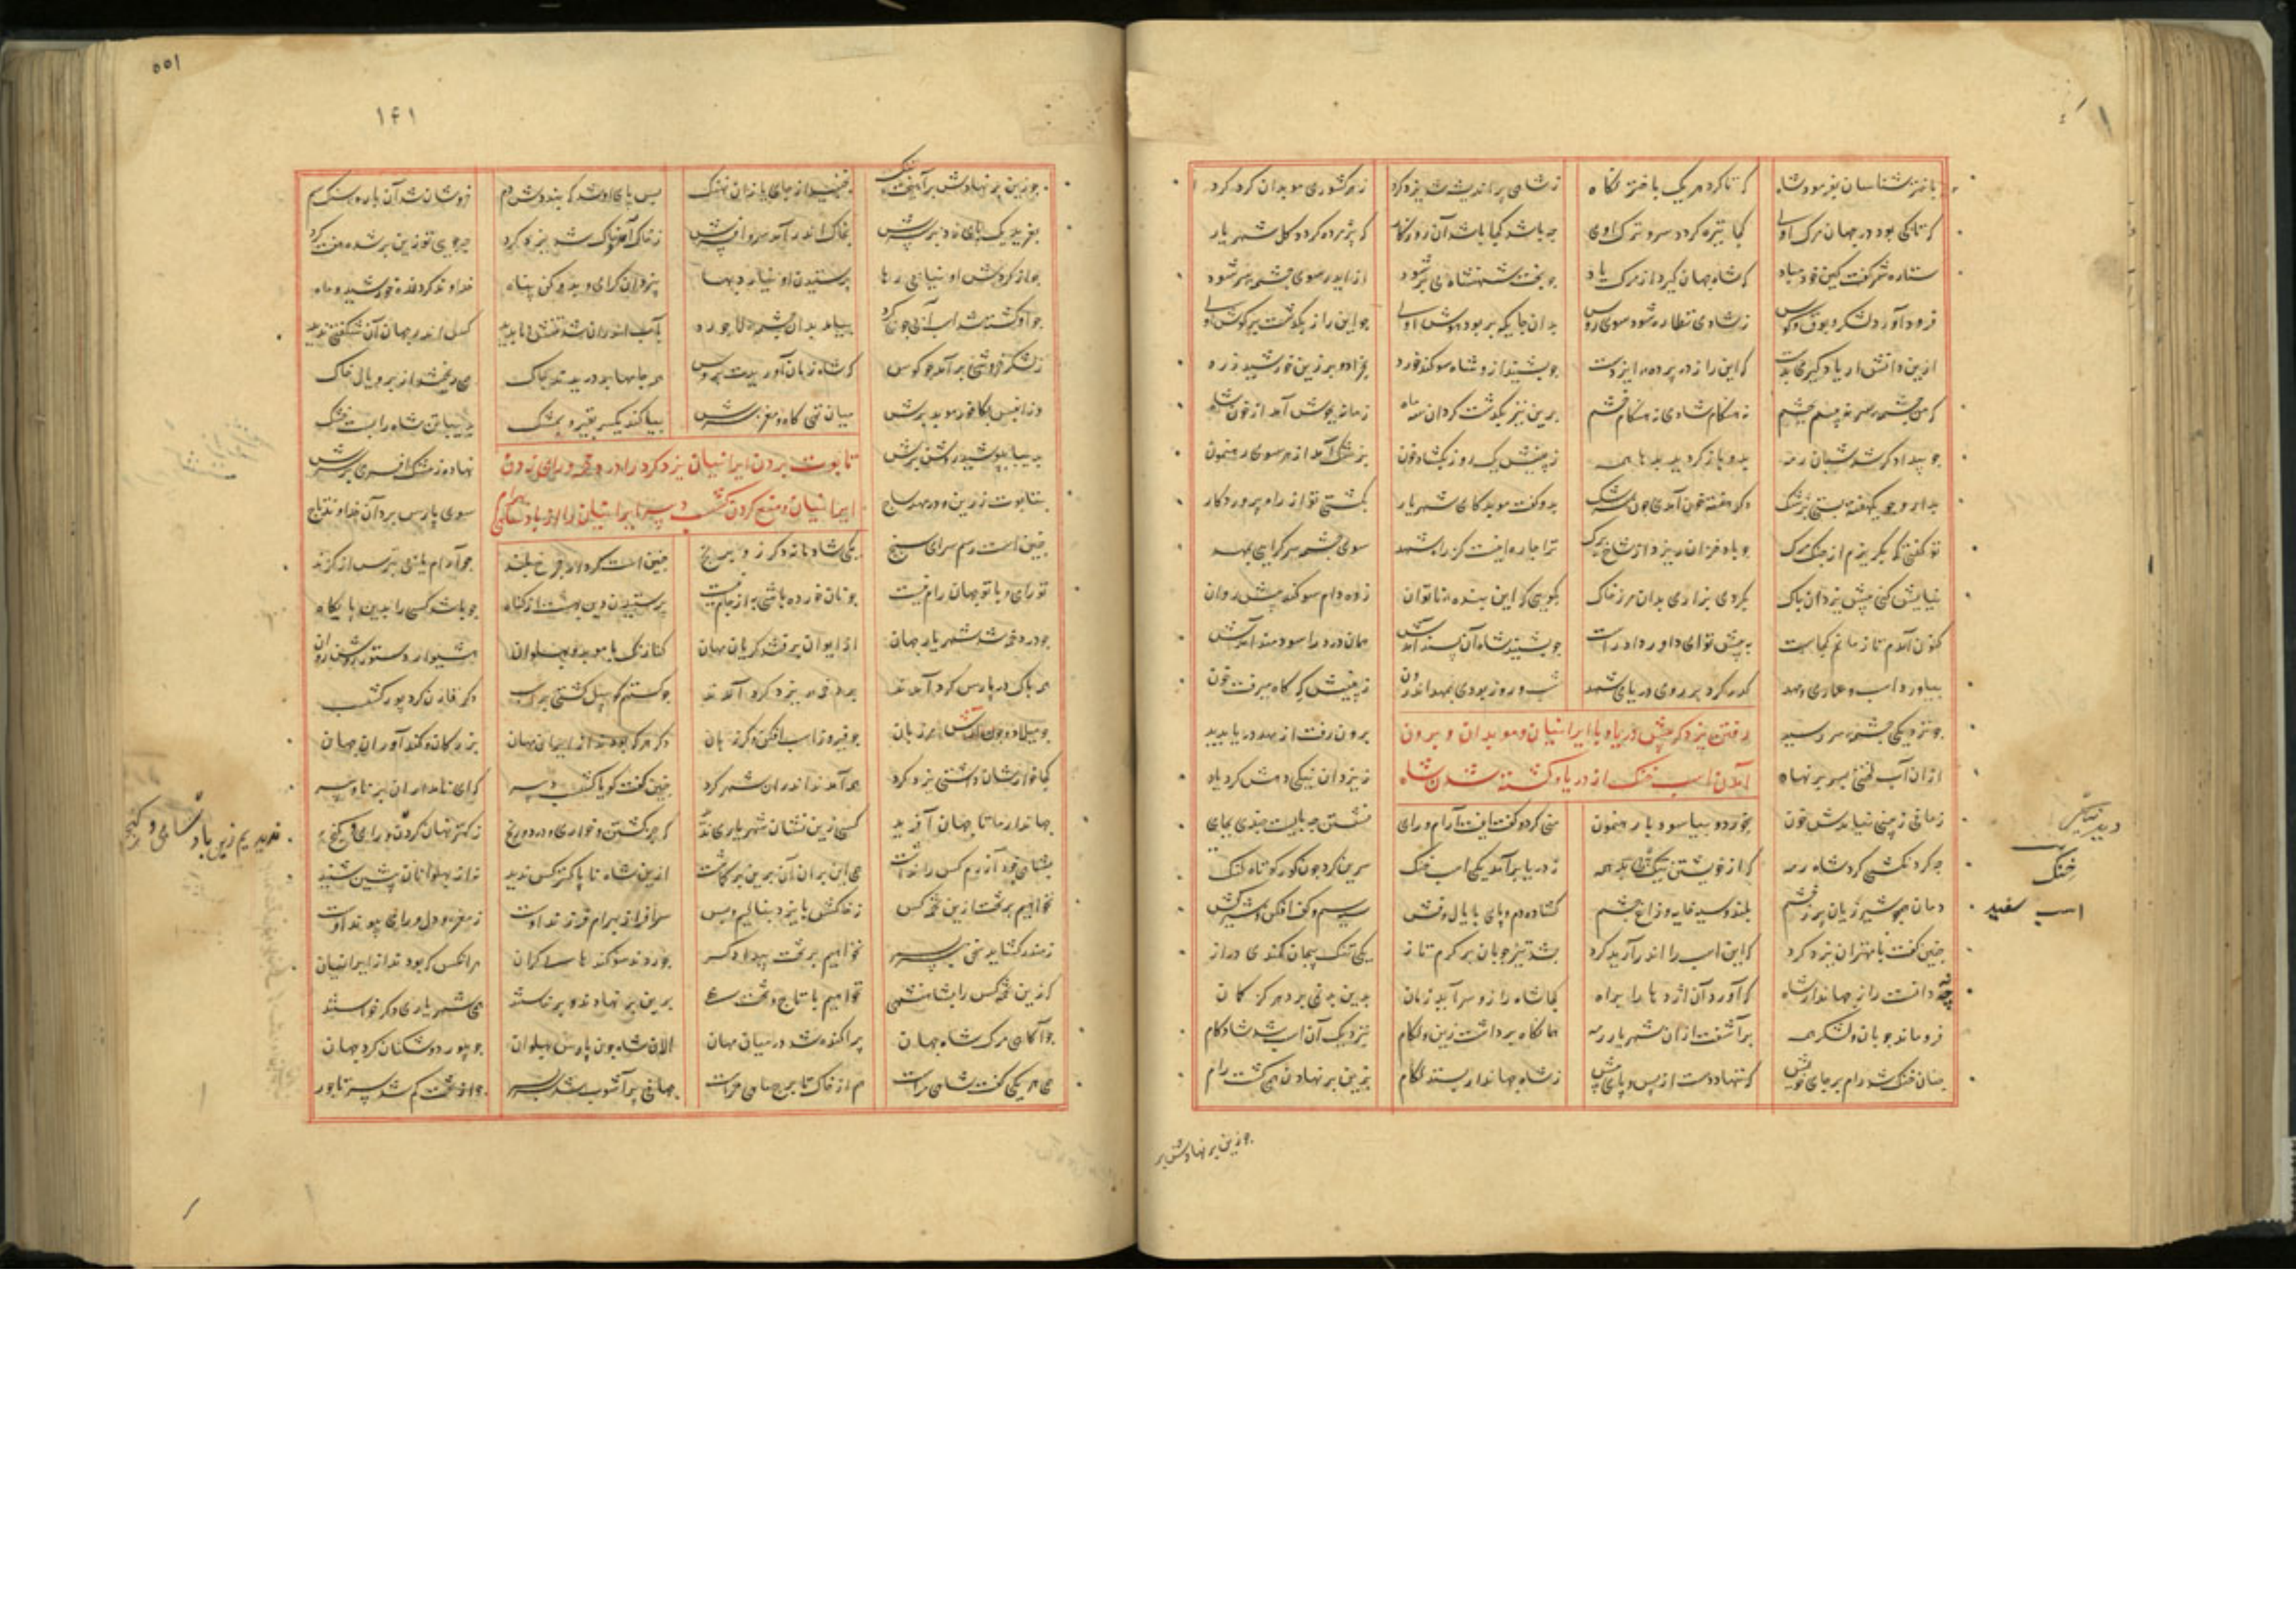 باختر شناسان بفرمود شاه که تا کرد هر یک باختر نگاه ز شاهی پراندیشه شد یزدکرد ز هر کشوری موبدان کرد کرد
که تا کی بود در جهان مرک اوی کجا تیره کردد سر و ترک اوی چه باشد کجا باشد آن روزکار که پژمرده کردد کل شهریار
ستاره شمر کفت کین خود مباد که شاه جهان کیرد از مرک یاد چو بخت شهنشاه بد رو شود از ایدر سوی چشمه سو شود
فرود آورد لشکر و بوق و کوس ز شادی نظاره شود سوی روس بدان جایکه بر بود هوش اوی چو این راز بکذشت بر کوش اوی
ازین دانش ار یاد کیری بدست که این راز در پرده ایزدست چو بشنید ازو شاه سوکند خورد بخراد و برزین خورشید زرد
که من چشمه سو نه بینم بچشم نه هنکام شادی نه هنکام خشم برین نیز بکذشت کردان سه ماه زمانه بجوش آمد از خون شاه
چو بیداد کر شد شبان رمه بدو باز کردد بدیها همه ز بینیش یک روز بکشاد خون پزشک آمد از هر سوی رهنمون
بدارو چو یک هفته بستی پزشک دکر هفته خون آمدی چون سرشک بدو کفت موبد که ای شهریار بکشتی تو از راه پروردکار
تو کفتی که بکریزم از چنک مرک چو باد خزان ریزد از شاخ برک ترا چاره اینست کز راه شهد سوی چشمه سو کرایی بمهد
نیایش کنی پیش یزدان پاک بکردی بزاری بدان مرز خاک بکویی که این بنده ناتوان زده دام سوکند پیش روان
کنون آمدم تا زمانم کجاست به پیش تو ای داور داد راست چو بشنید شاه آن پسند آمدش همان درد را سودمند آمدش
بیاورد اسب و عماری و مهد کذر کرد بر روی دریای شهد شب و روز بودی بمهد اندرون ز بینیش که کاه میرفت خون
رفتن یزدکرد پیش دریا و با ایرانیان و موبدان و برون
آمدن اسب خنک از دریا و کشته شدن شاه
چو نزدیکی چشمه سو رسید برون رفت از مهد دریا بدید
ازان آب لختی بسر بر نهاد ز یزدان نیکی دهش کرد یاد
زمانی ز بینی نیامدش خون بخورد و بیاسود با رهنمون منی کرد و کفت اینت آرام و رای نشستن چه بایست چندی بجای
چو کردنکشی کرد شاه رمه که از خویشتن نیک بد همه ز دریا برآمد یکی اسب خنک سرین کرد چون کور کوتاه لنک
دمان همچو شیر ژیان پر ز خشم بلند و سیه خایه و زاغ چشم کشان دم و پای با یال و فش سیه سم و کف افکن و شیرکش
چنین کفت با مهتران یزدکرد که این اسب را اندر آرید کرد بشد تیز چوپان بر کره تاز یکی تنک پیچان کمندی دراز
چه دانست راز جهاندار شاه که آورد آن اژدها را براه کجا شاه را زو سر آید زمان بدین پی برد هر کز کمان
فرو ماند چوپان و لشکر همه برآشفت ازان شهریار رمه همانکاه برداشت زین و لکام بنزدیک آن اسب شد شادکام
چنان خنک شد رام بر جای خویش که ننهاد دست از پس و پای پیش ز شاه جهاندار بستد لکام بزین بر نهادن همی کشت رام
دید
خنک
اسب سفید
چو زین بر نهادش بر
۱۴۱
چو زین بر نهادش برآهیخت تنک نجنبید از جای یازان نهنک پس پای او شد که بنددش دم خروشان شد آن باره سنک سم
بغرید و یک پای زد بر سرش بخاک اندر آمد سر و افسرش ز خاک آمد و خاک شد یزدکرد چه جویی تو زین بر شده هفت کرد
چو از کردش او نیابی رها پرستیدن او نیارد بها بیزدان کرای و بدو کن پناه خداوند کردنده خورشید و ماه
چو او کشته شد اسب آبی چو کرد بیامد بدان چشمه لاجورد بآب اندرون شد تنش ناپدید کس اندر جهان آن شکفتی ندید
ز لشکر خروشی برآمد چو کوس که شاها زمان آوریدت بروس همه جامها بدریدند چاک همی ریختند از بر و یال خاک
وز انپس بکافید موبد برش میان تهی کاه و مغز سرش بیاکند یکسر بقیر و بمشک بدیبا تن شاه را بست خشک
بدیبا بپوشید روشن برش نهاده ز مشک افسری بر سرش
بتابوت زرین و در مهد ساج سوی پارس برد آن خداوند تاج
تابوت بردن ایرانیان یزدکرد را در دخمه و رای زدن
ایرانیان و منع کردن کشسب دبیر ایرانیان را از پادشاهی بهرام
چنین است رسم سرای سپنج یکی شاد ماند دکر زو برنج چنین است کردار چرخ بلند چو آرام یابی بترس از کزند
تو رامی و با تو جهان رام نیست چو نان خورده باشی به از جام نیست پرستیدن دین بهست از کناه چو باشد کسی را بدین پایکاه
چو در دخمه شد شهریار جهان از ایوان برفتند کریان مهان کنارنک با موبد و پهلوان هشیوار دستور روشن روان
همه پاک در پارس کرد آمدند بر دخمه یزدکرد آمدند چو کستهم کو پیل کشتی بر اسب دکر قارن کرد پور کشسب
چو میلاد و چون آرش مرزبان چو فیروز اسب افکن و کرزبان دکر هر که بودند از ایران مهان بزرکان و کندآوران جهان
کجا خوارشان داشتی یزدکرد همه آمدند اندران شهر کرد چنین کفت کویا کشسب دبیر که ای نامداران برنا و پیر
جهاندار ما تا جهان آفرید کسی زین نشان شهریاری ندید که جز کشتن و خواری و درد و رنج ز کهتر نهان کردن و رای و کنج
ازین شاه ناپاک تر کس ندید نه از پهلوانان پیشین شنید
نخواهیم بر تخت ازین تخمه کس ز خاکش بایزد بنالیم و بس سرافراز بهرام فرزند اوست ز مغز و دل و رای پیوند اوست
ز منذر کشاید سخن سر بسر نخواهیم بر تخت بیدادکر بخوردند سوکندهای کران هر انکس که بودند از ایرانیان
کزین تخمه کس را بشاهنشهی نخواهیم با تاج و تخت مهی برین بر نهادند و برخاستند همی شهریاری دکر خواستند
چو آکاهی مرک شاه جهان پراکنده شد در میان مهان الان شاه چون پارس پهلوان
همی هر یکی کفت شاهی مراست هم از خاک تا برج ماهی مراست جهانی پرآشوب شد سر بسر چو از تخت کم شد سر تاجور